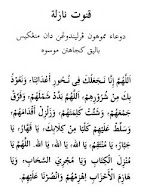 قنوت نازلة
دوعاء مموهون ڤرليندوڠن دان منڠكيس
باليق كجاهتن موسوه
اللَّهُمَّ إِنَّا نَجْعَلُكَ فِي نُحُورِ أَعْدَائِنَا، وَنَعُوذُ
بِكَ مِنْ شُرُورِهِمْ، اللَّهُمَّ بَدِّدْ شَمْلَهُمْ، وَفَرِّقْ
جَمْعَهُمْ، وَشَتِّتْ كَلِمَتَهُمْ، وَزَلْزِلْ أَقْدَامَهُمْ،
وَسَلِّطْ عَلَيْهِمْ كَلْبًا مِنْ كِلَابِكَ، يَا قَهَّارُ، يَا
جَبَّارُ، يَا مُنْتَقِمُ، يَا اللهُ، يَا اللهُ، يَا اللهُ، اللَّهُمَّ يَا
مُنْزِلَ الْكِتَابِ وَيَا مُجْرِيَ السَّحَابِ، وَيَا
هَازِمَ الْأَحْزَابِ اهْزِمْهُمْ وَانْصُرْنَا عَلَيْهِمْ